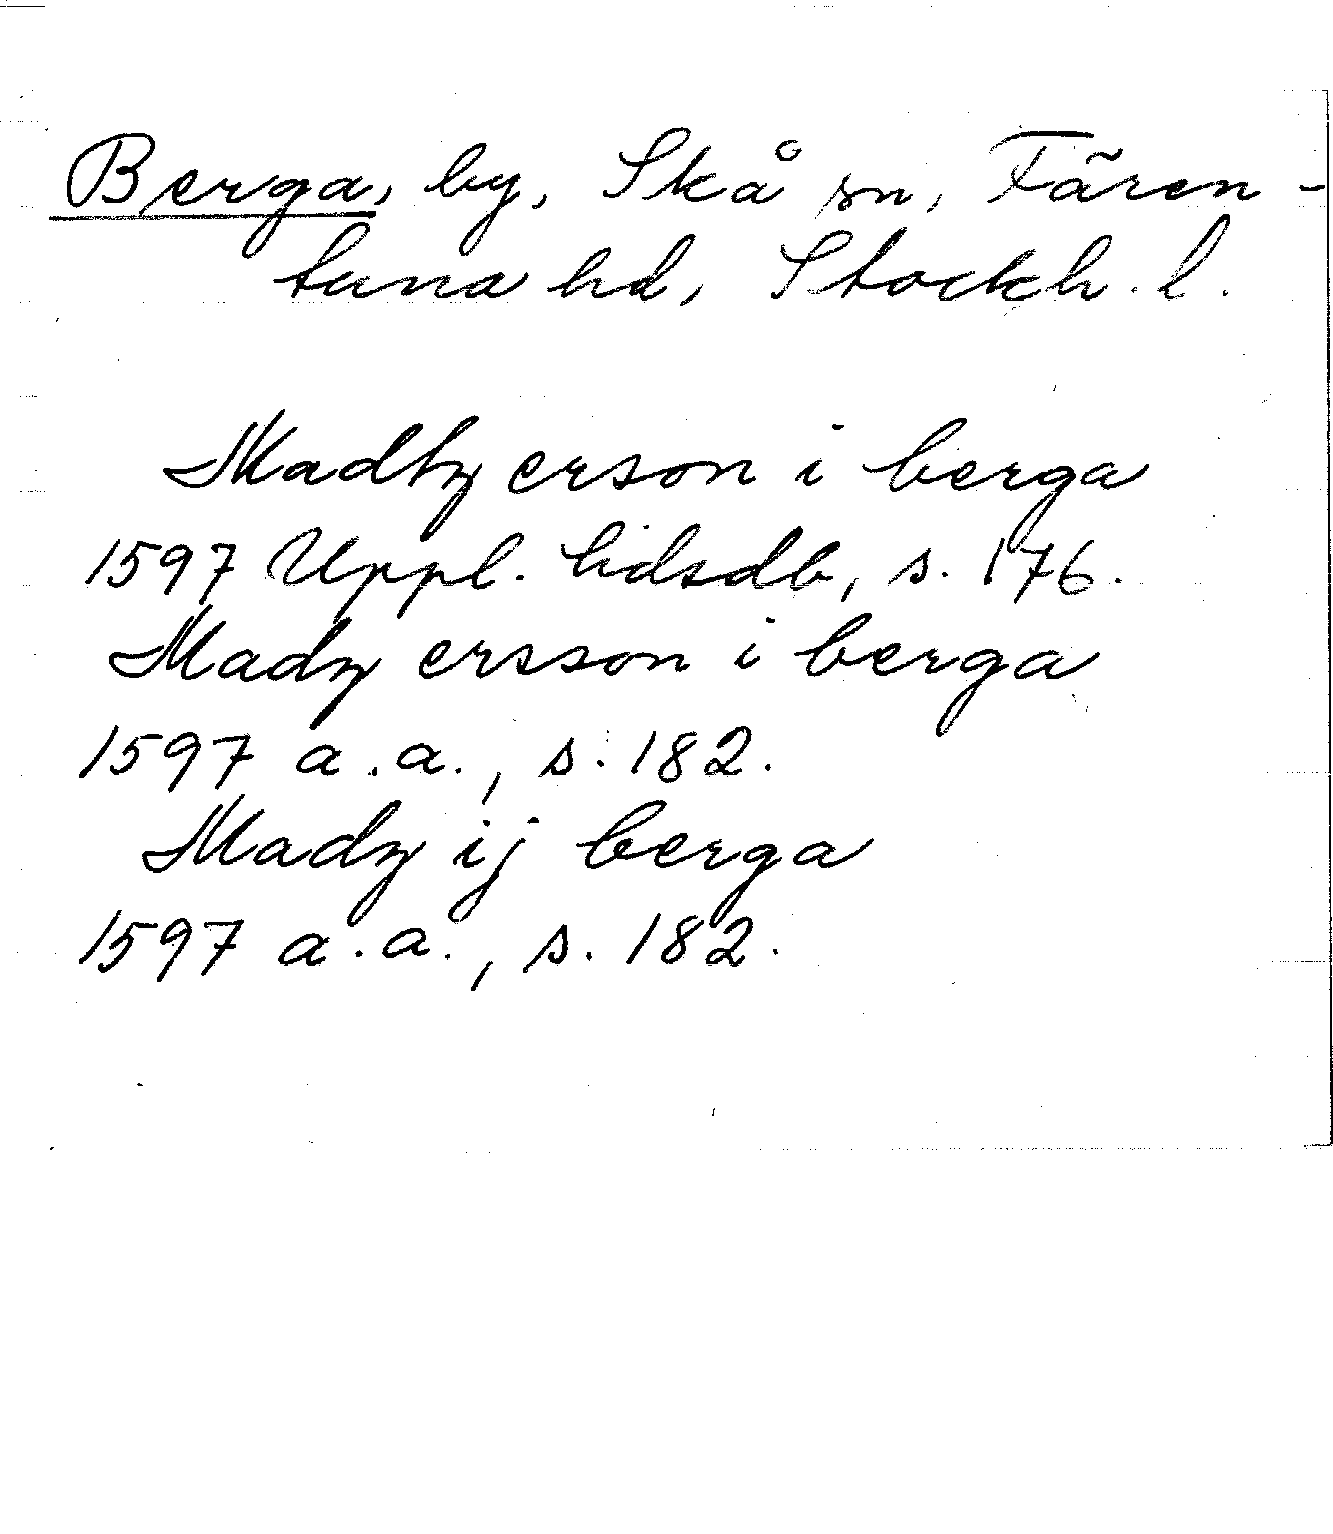 Berga, by, Skå sn, Fären-
tuna hd, Stockh. l.
Madtz erson i berga
1597 Uppl. lidsdb, s. 176.
Madz ersson i berga
1597 a.a., s. 182.
Madz ij berga
1597 a.a., s. 182.